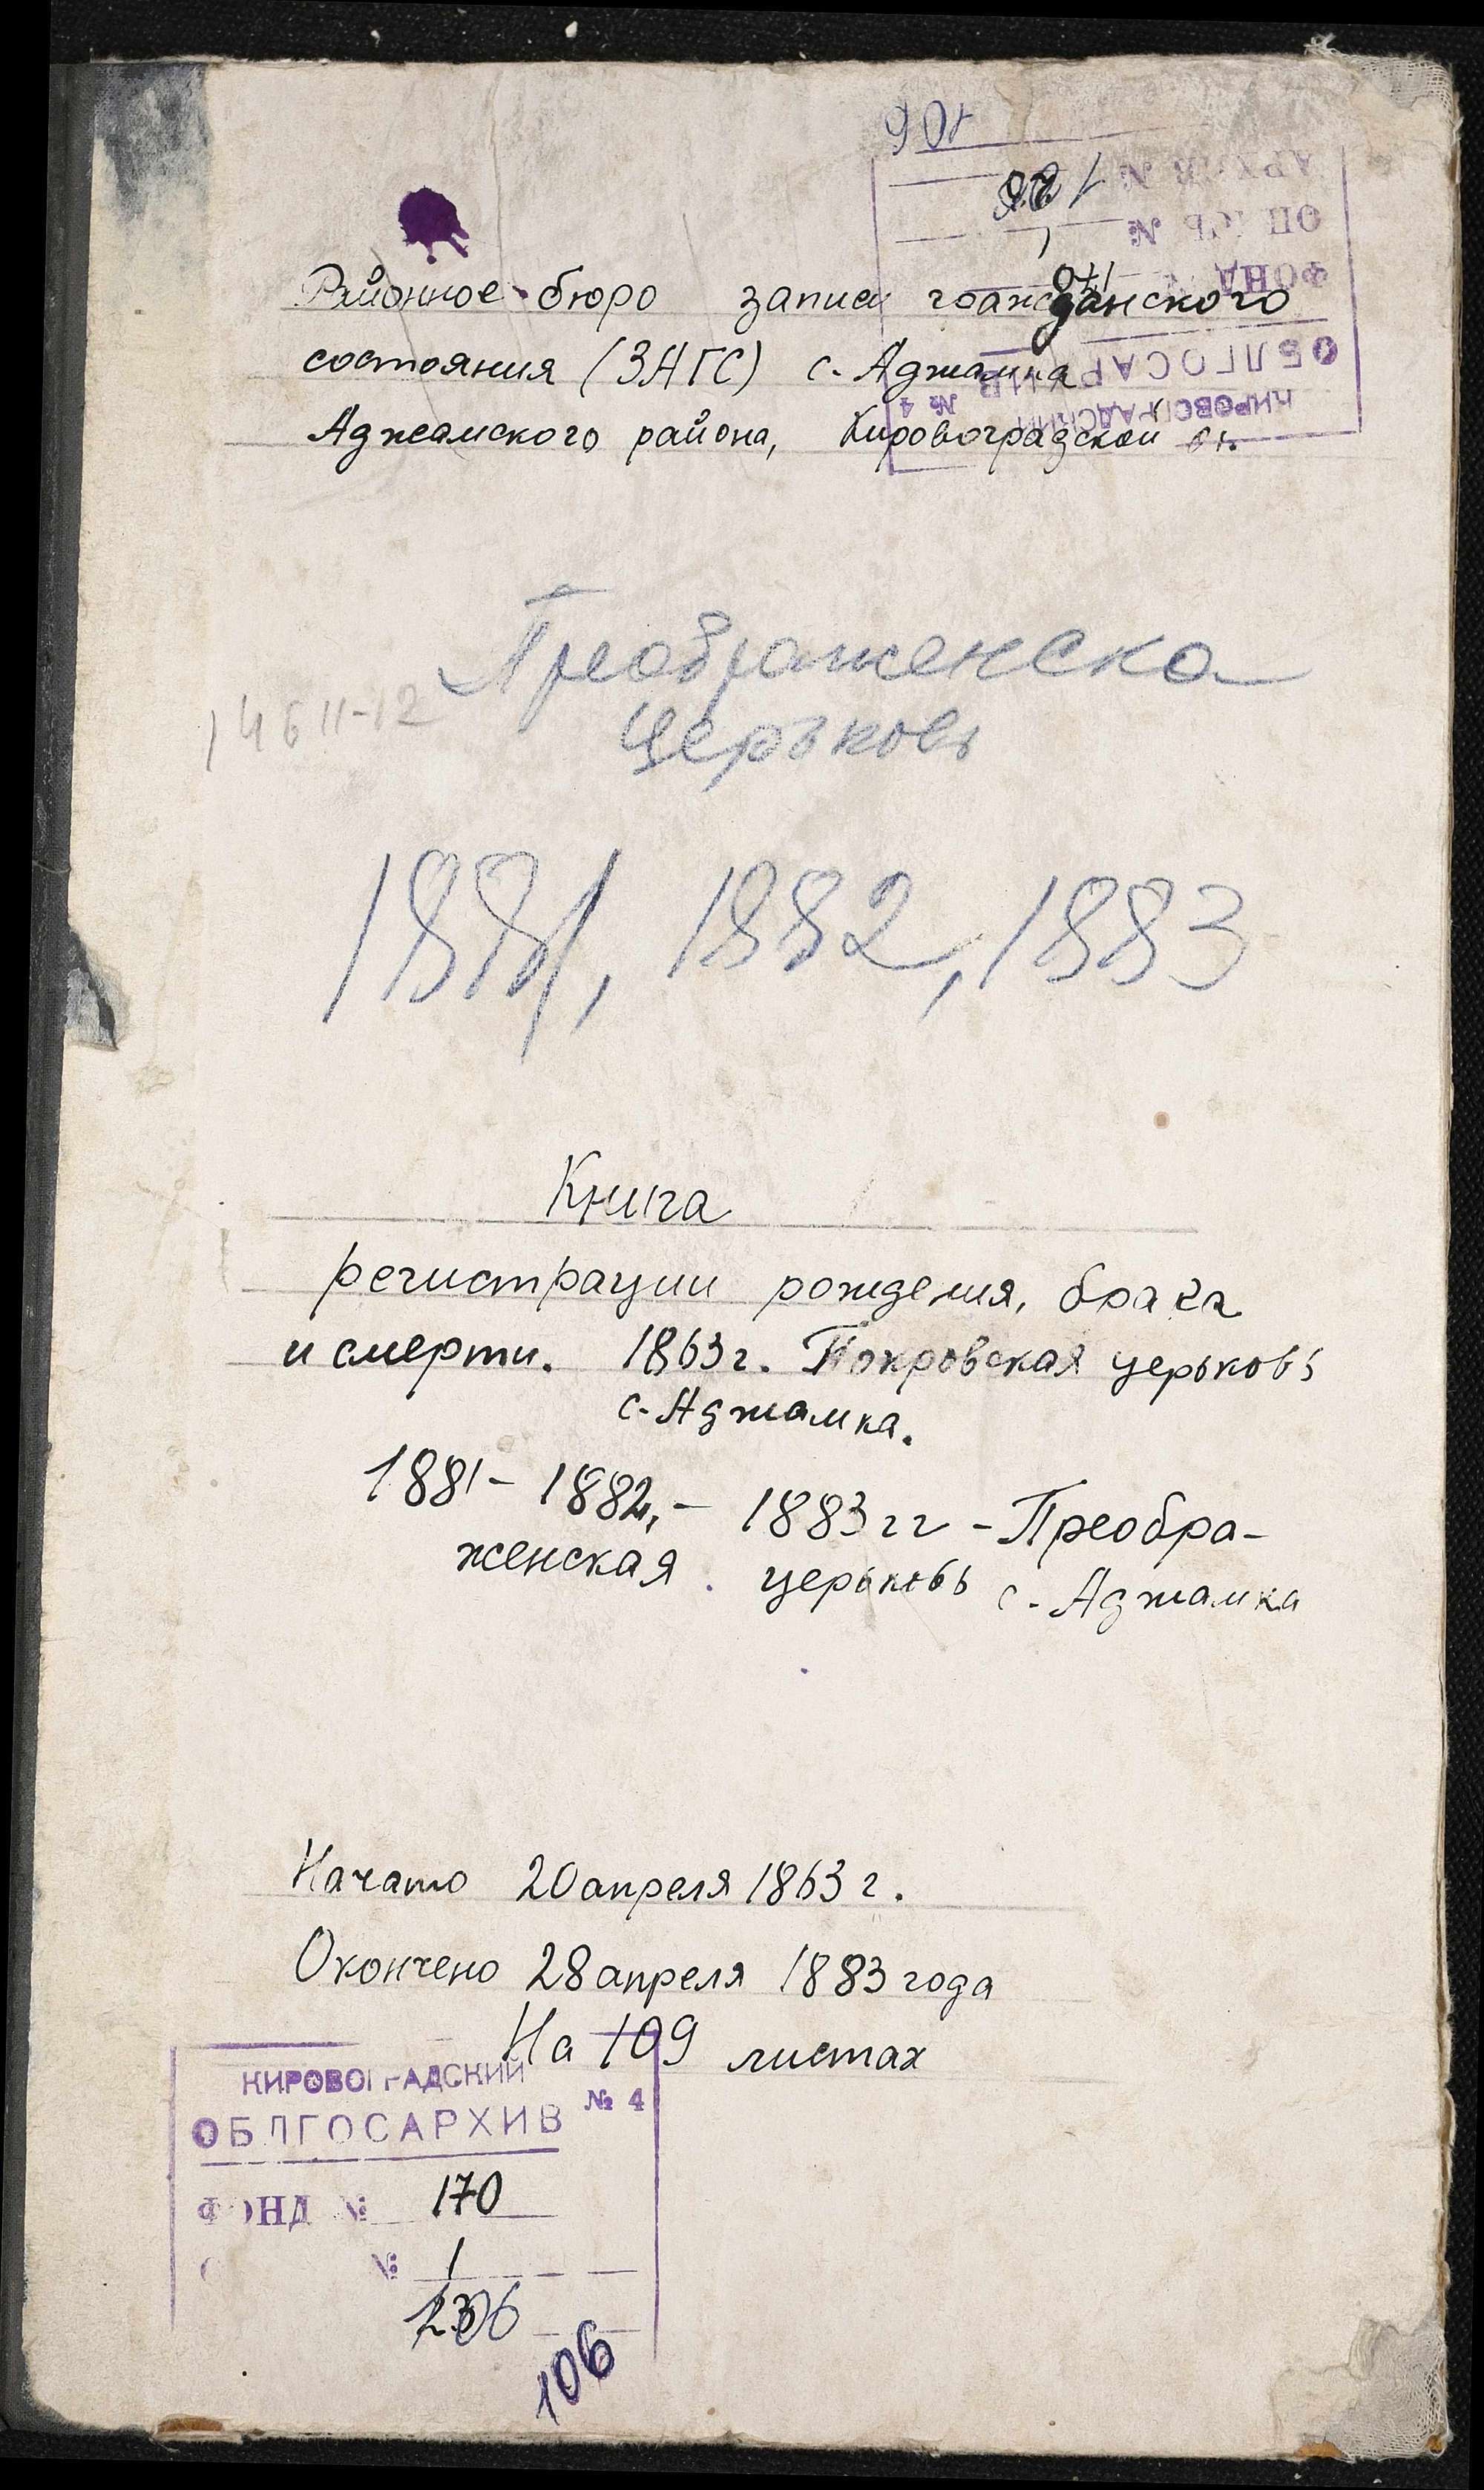 106
АРХИВ №
ОПИСЬ № 1
ФОНД № 170
ОБЛГОСАРХИВ
КИРОВОГРАДСКИЙ № 4
Районное бюро записи гражданского
состояния (ЗАГС) с. Аджамка
Аджамского района, Кировоградской
Преображенска
церьковь
14611-12
1881, 1882, 1883
Книга
регистрации рождения, брака
и смерти. 1863 г. Покровская церьковь
с. Аджамка.
1881 - 1882, - 1883 гг - Преобра-
женская церьковь с. Аджамка
Начато 20 апреля 1863 г.
Окончено 28 апреля 1883 года
На 109 листах
КИРОВОГРАДСКИЙ
ОБЛГОСАРХИВ № 4
ФОНД № 170
№ 1
106